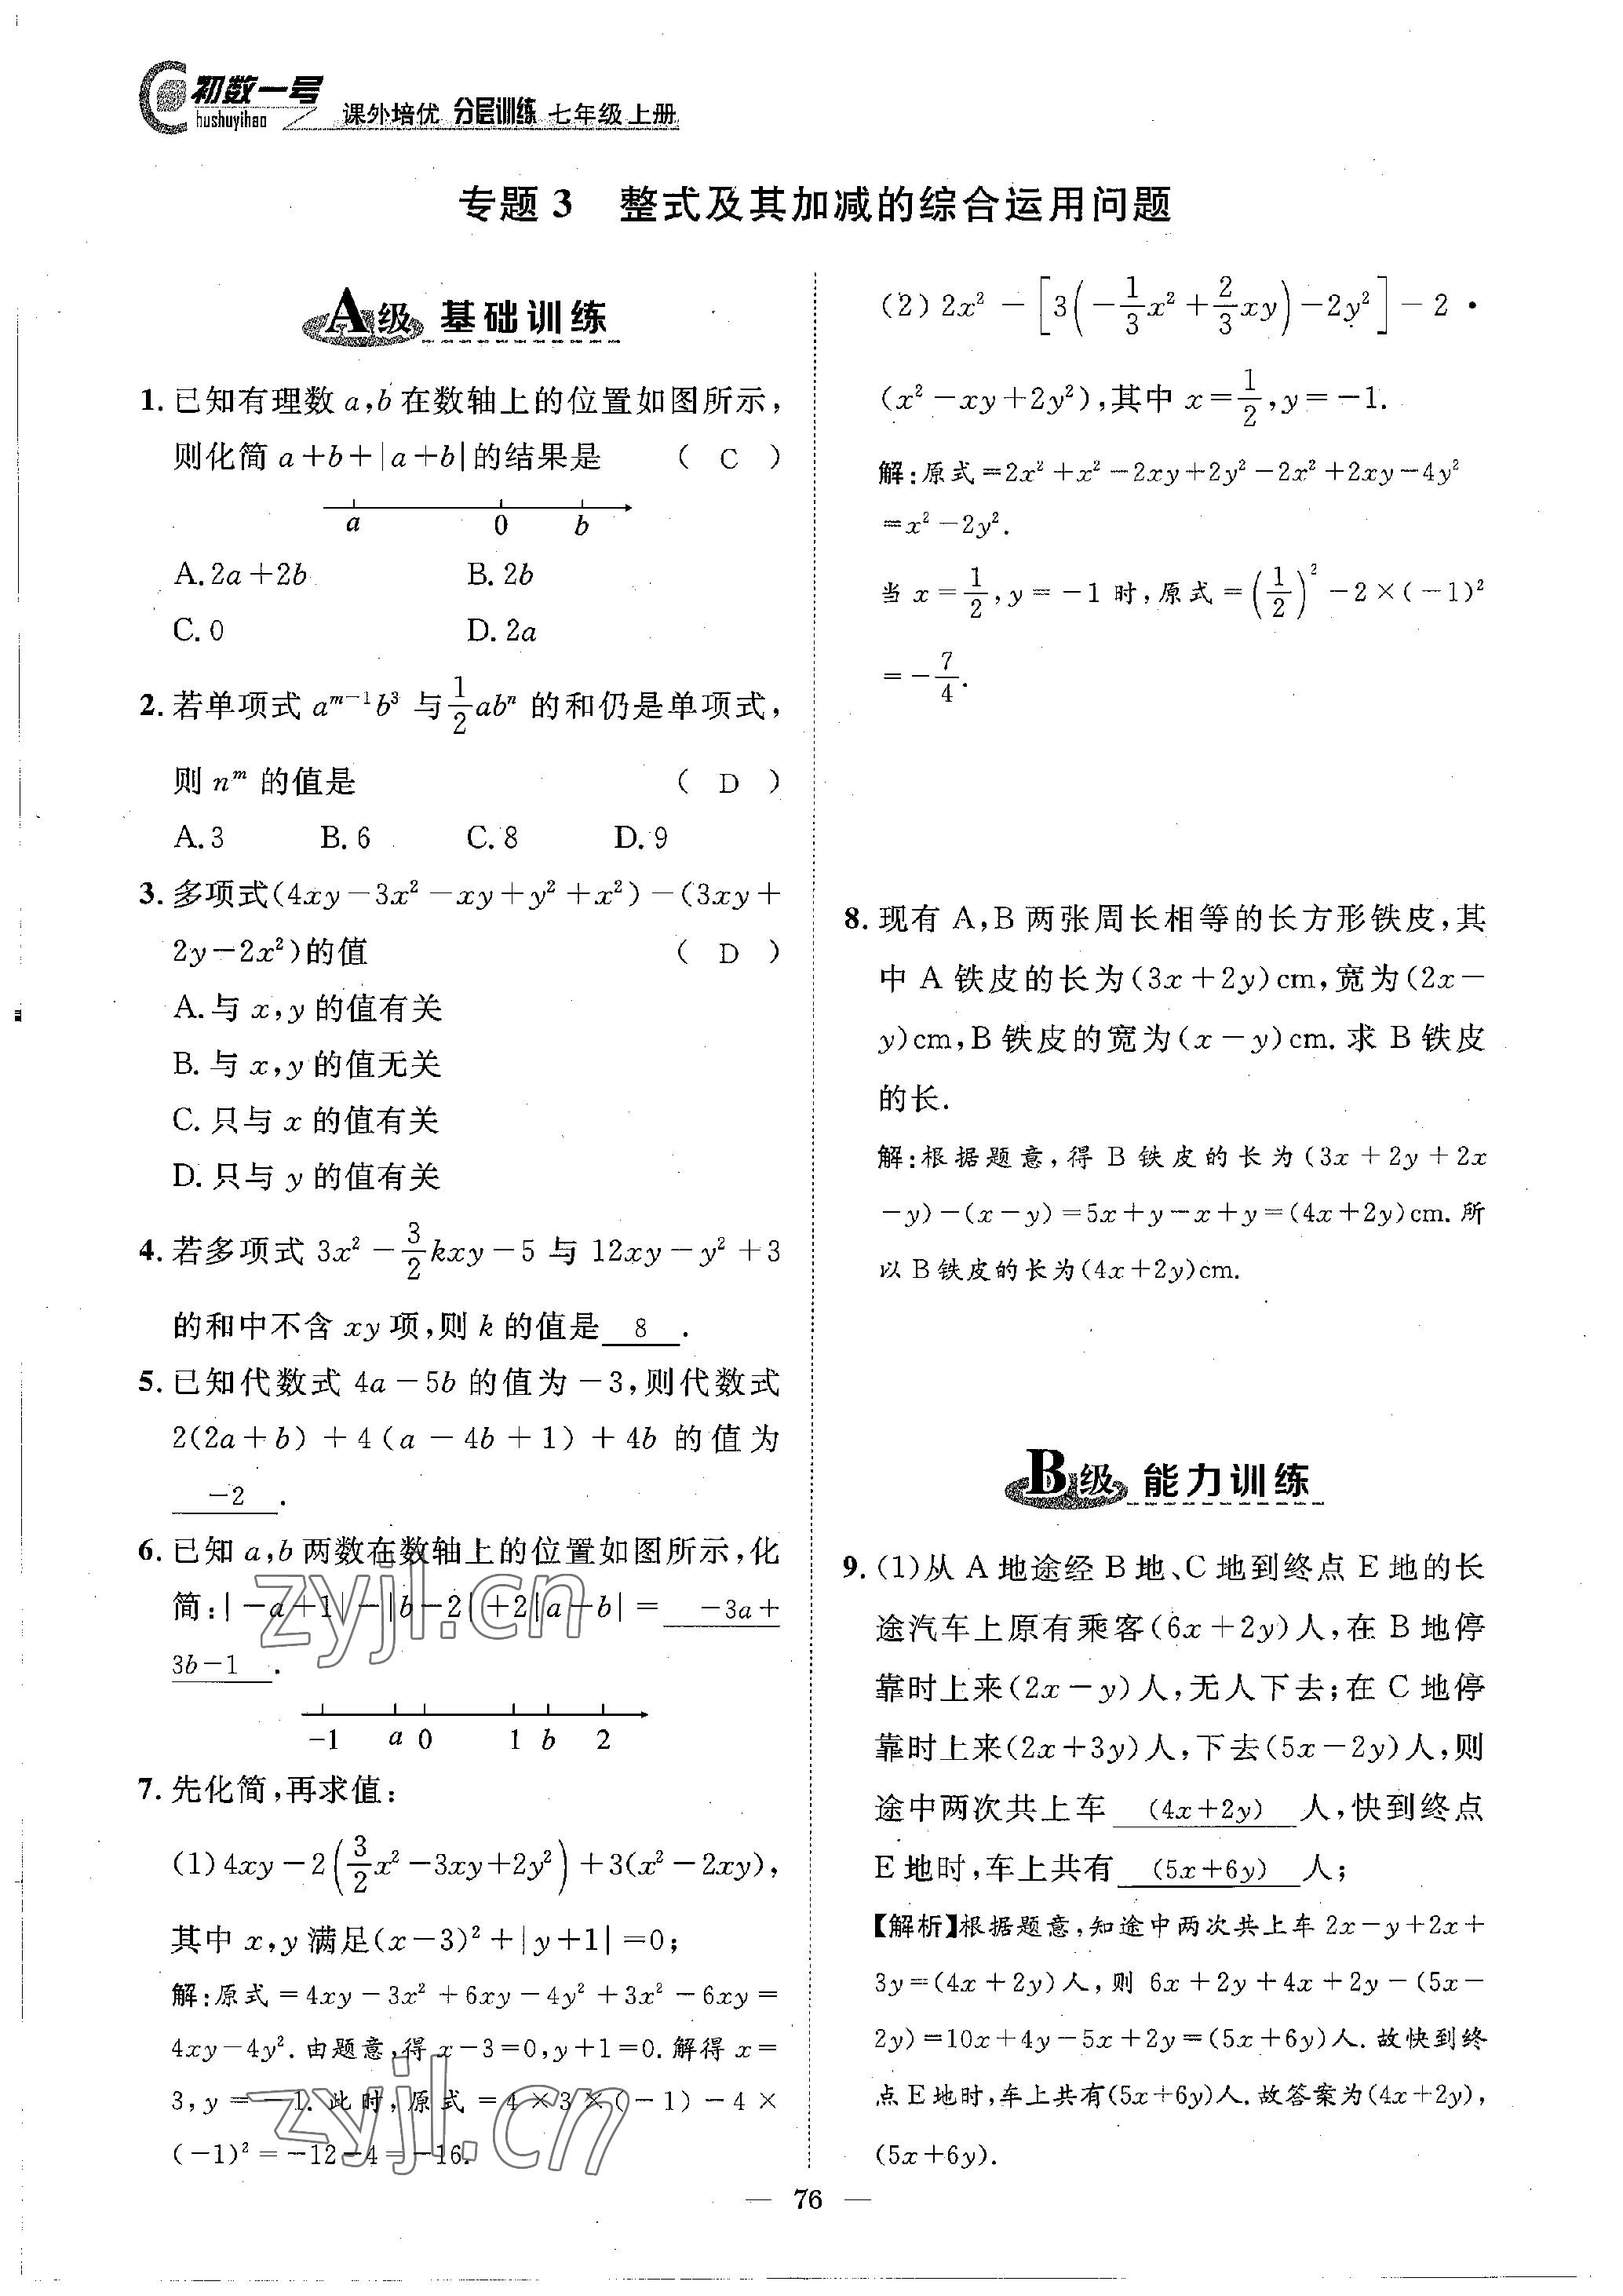 初数一号
chushuyihao
课外培优 分层训练 七年级 上册
专题 3 整式及其加减的综合运用问题
A级 基础训练
1. 已知有理数 a,b 在数轴上的位置如图所示,
则化简 a+b+|a+b|的结果是 ( C )
a 0 b
A. 2a+2b B. 2b
C. 0 D. 2a
2. 若单项式 a^{m-1}b³ 与 \frac{1}{2}abⁿ 的和仍是单项式,
则 n^m 的值是 ( D )
A. 3 B. 6 C. 8 D. 9
3. 多项式(4xy-3x²-xy+y²+x²)-(3xy+
2y-2x²)的值 ( D )
A. 与 x,y 的值有关
B. 与 x,y 的值无关
C. 只与 x 的值有关
D. 只与 y 的值有关
4. 若多项式 3x²-\frac{3}{2}kxy-5 与 12xy-y²+3
的和中不含 xy 项,则 k 的值是 8 .
5. 已知代数式 4a-5b 的值为-3,则代数式
2(2a+b)+4(a-4b+1)+4b 的值为
-2 .
6. 已知 a,b 两数在数轴上的位置如图所示,化
简:|-a+1|-|b-2|+2|a-b|= -3a+
3b-1 .
-1 a 0 1 b 2
7. 先化简,再求值:
(1)4xy-2(\frac{3}{2}x²-3xy+2y²)+3(x²-2xy),
其中 x,y 满足(x-3)²+|y+1|=0;
解:原式=4xy-3x²+6xy-4y²+3x²-6xy=
4xy-4y². 由题意,得 x-3=0,y+1=0. 解得 x=
3,y=-1. 此时,原式=4×3×(-1)-4×
(-1)²=-12-4=-16.
(2)2x²-[3(-\frac{1}{3}x²+\frac{2}{3}xy)-2y²]-2·
(x²-xy+2y²),其中 x=\frac{1}{2},y=-1.
解:原式=2x²+x²-2xy+2y²-2x²+2xy-4y²
=x²-2y².
当 x=\frac{1}{2},y=-1 时,原式=(\frac{1}{2})²-2×(-1)²
=-\frac{7}{4}.
8. 现有 A,B 两张周长相等的长方形铁皮,其
中 A 铁皮的长为(3x+2y)cm,宽为(2x-
y)cm,B 铁皮的宽为(x-y)cm. 求 B 铁皮
的长.
解:根据题意,得 B 铁皮的长为(3x+2y+2x
-y)-(x-y)=5x+y-x+y=(4x+2y)cm. 所
以 B 铁皮的长为(4x+2y)cm.
B级 能力训练
9. (1)从 A 地途经 B 地、C 地到终点 E 地的长
途汽车上原有乘客(6x+2y)人,在 B 地停
靠时上来(2x-y)人,无人下去;在 C 地停
靠时上来(2x+3y)人,下去(5x-2y)人,则
途中两次共上车 (4x+2y) 人,快到终点
E 地时,车上共有 (5x+6y) 人;
【解析】根据题意,知途中两次共上车 2x-y+2x+
3y=(4x+2y)人,则 6x+2y+4x+2y-(5x-
2y)=10x+4y-5x+2y=(5x+6y)人. 故快到终
点 E 地时,车上共有(5x+6y)人. 故答案为(4x+2y),
(5x+6y).
zyjl.cn
zyjl.cn
— 76 —